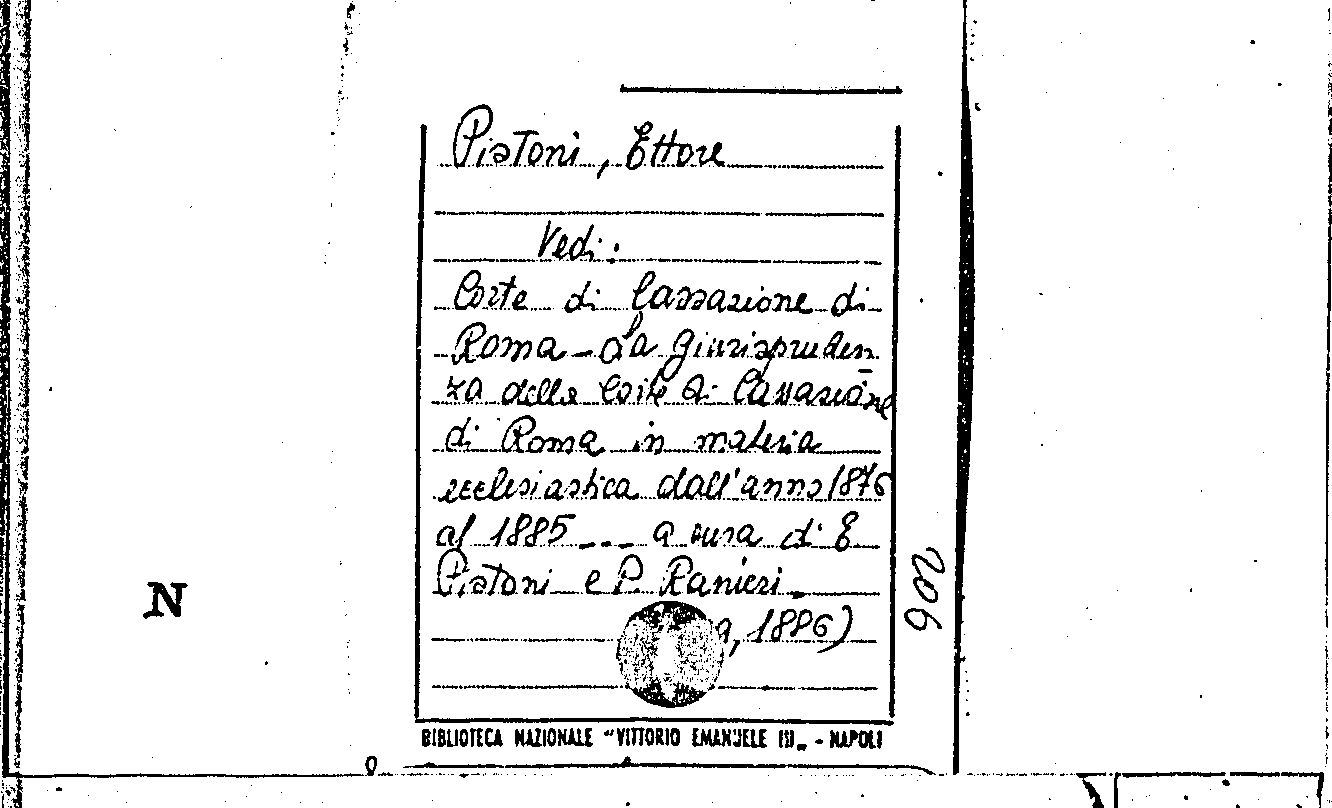 Pistoni, Ettore
Vedi:
Corte di Cassazione di
Roma - La giurispruden
za della Corte di Cassazione
di Roma in materia
ecclesiastica dall'anno 1876
al 1885 --- a cura di E
Pistoni e P. Ranieri.
a, 1886)
BIBLIOTECA NAZIONALE "VITTORIO EMANUELE III„ - NAPOLI
N
206